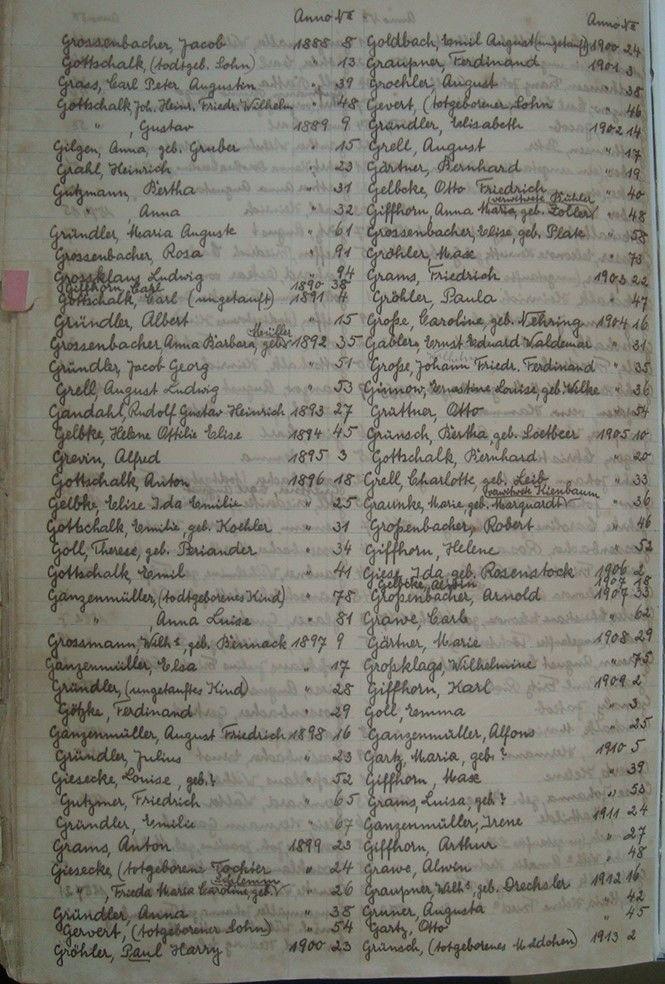 Anno No
Grossenbacher, Jacob 1888 8
Gottschalk, (todtgeb. Sohn) " 13
Grass, Carl Peter Augustin " 39
Gottschalk Joh. Heinr. Friedr. Wilhelm " 48
" , Gustav 1889 9
Gilgen, Anna, geb. Gruber " 15
Grahl, Heinrich " 23
Gutzmann, Bertha " 31
" , Anna " 32
Gründler, Maria Auguste " 61
Grossenbacher, Rosa " 91
Grossklaus Ludwig " 94
Giffhorn, Carl 1890 38
Gottschalk, Carl (ungetauft) 1891 4
Gründler, Albert " 15
Müller
Grossenbacher Anna Barbara, geb. 1892 35
Gründler, Jacob Georg " 51
Grell, August Ludwig " 53
Gandahl, Rudolf Gustav Heinrich 1893 27
Gelbke, Helene Ottilie Elise 1894 45
Grevin, Alfred 1895 3
Gottschalk, Anton 1896 18
Gelbke, Elise Ida Emilie " 25
Gottschalk, Emilie, geb. Koehler " 31
Goll, Therese, geb. Periander " 34
Gottschalk, Emil " 41
Ganzenmüller, (todtgeborenes Kind) " 78
" , Anna Luise " 81
Grossmann, Wilh., geb. Biermack 1897 9
Ganzenmüller, Elsa " 17
Gründler, (ungetauftes Kind) " 28
Götzke, Ferdinand " 29
Ganzenmüller, August Friedrich 1898 16
Gründler, Julius " 23
Giesecke, Louise, geb. ? " 52
Gutzmer, Friedrich " 65
Gründler, Emilie " 67
Grams, Anton 1899 23
Giesecke, (totgeborene Tochter " 24
Schlemm
" , Frieda Maria Caroline, geb. " 26
Gründler, Anna " 38
Gervert, (totgeborener Sohn) " 54
Gröhler, Paul Harry 1900 23
Anno No
Goldbach, Emil August (ungetauft) 1900 24
Graupner, Ferdinand 1901 3
Groehler, August " 38
Gevert, (totgeborener Sohn " 46
Gründler, Elisabeth 1902 14
Grell, August " 17
Gärtner, Bernhard " 19
Gelbcke, Otto Friedrich " 40
verwitwete Kühler
Giffhorn, Anna Maria, geb. Zoller " 48
Grossenbacher, Elise, geb. Plate " 58
Gröhler, Max " 73
Grams, Friedrich 1903 22
Gröhler, Paula " 47
Große, Caroline, geb. Nehring 1904 16
Gabler, Ernst Eduard Waldemar " 31
Große, Johann Friedr. Ferdinand " 35
Ginnow, Ernastine Louise, geb. Wilke " 36
Grüttner, Otto " 54
Grünsch, Bertha, geb. Soetbeer 1905 10
Gottschalk, Bernhard " 20
Grell, Charlotte, geb. Leib " 33
verwitwete Kienbaum
Graunke, Marie, geb. Marquardt " 36
Großenbacher, Robert " 46
Giffhorn, Helene " 52
Giese, Ida, geb. Rosenstock 1906 2
1907 18
Großenbacher, Arnold 1907 33
Grawe, Carl " 62
Gärtner, Marie 1908 29
Großklags, Wilhelmine " 75
Giffhorn, Karl 1909 2
Goll, Emma " 3
Ganzenmüller, Alfons " 25
Gartz, Maria, geb. ? 1910 5
Giffhorn, Max " 39
Grams, Luisa, geb. ? " 53
Ganzenmüller, Irene 1911 24
Giffhorn, Arthur " 27
Grawe, Alwin " 48
Graupner, Wilh., geb. Drechsler 1912 16
Gruner, Augusta " 42
Gartz, Otto " 45
Grünsch, (totgeborenes Mädchen) 1913 2